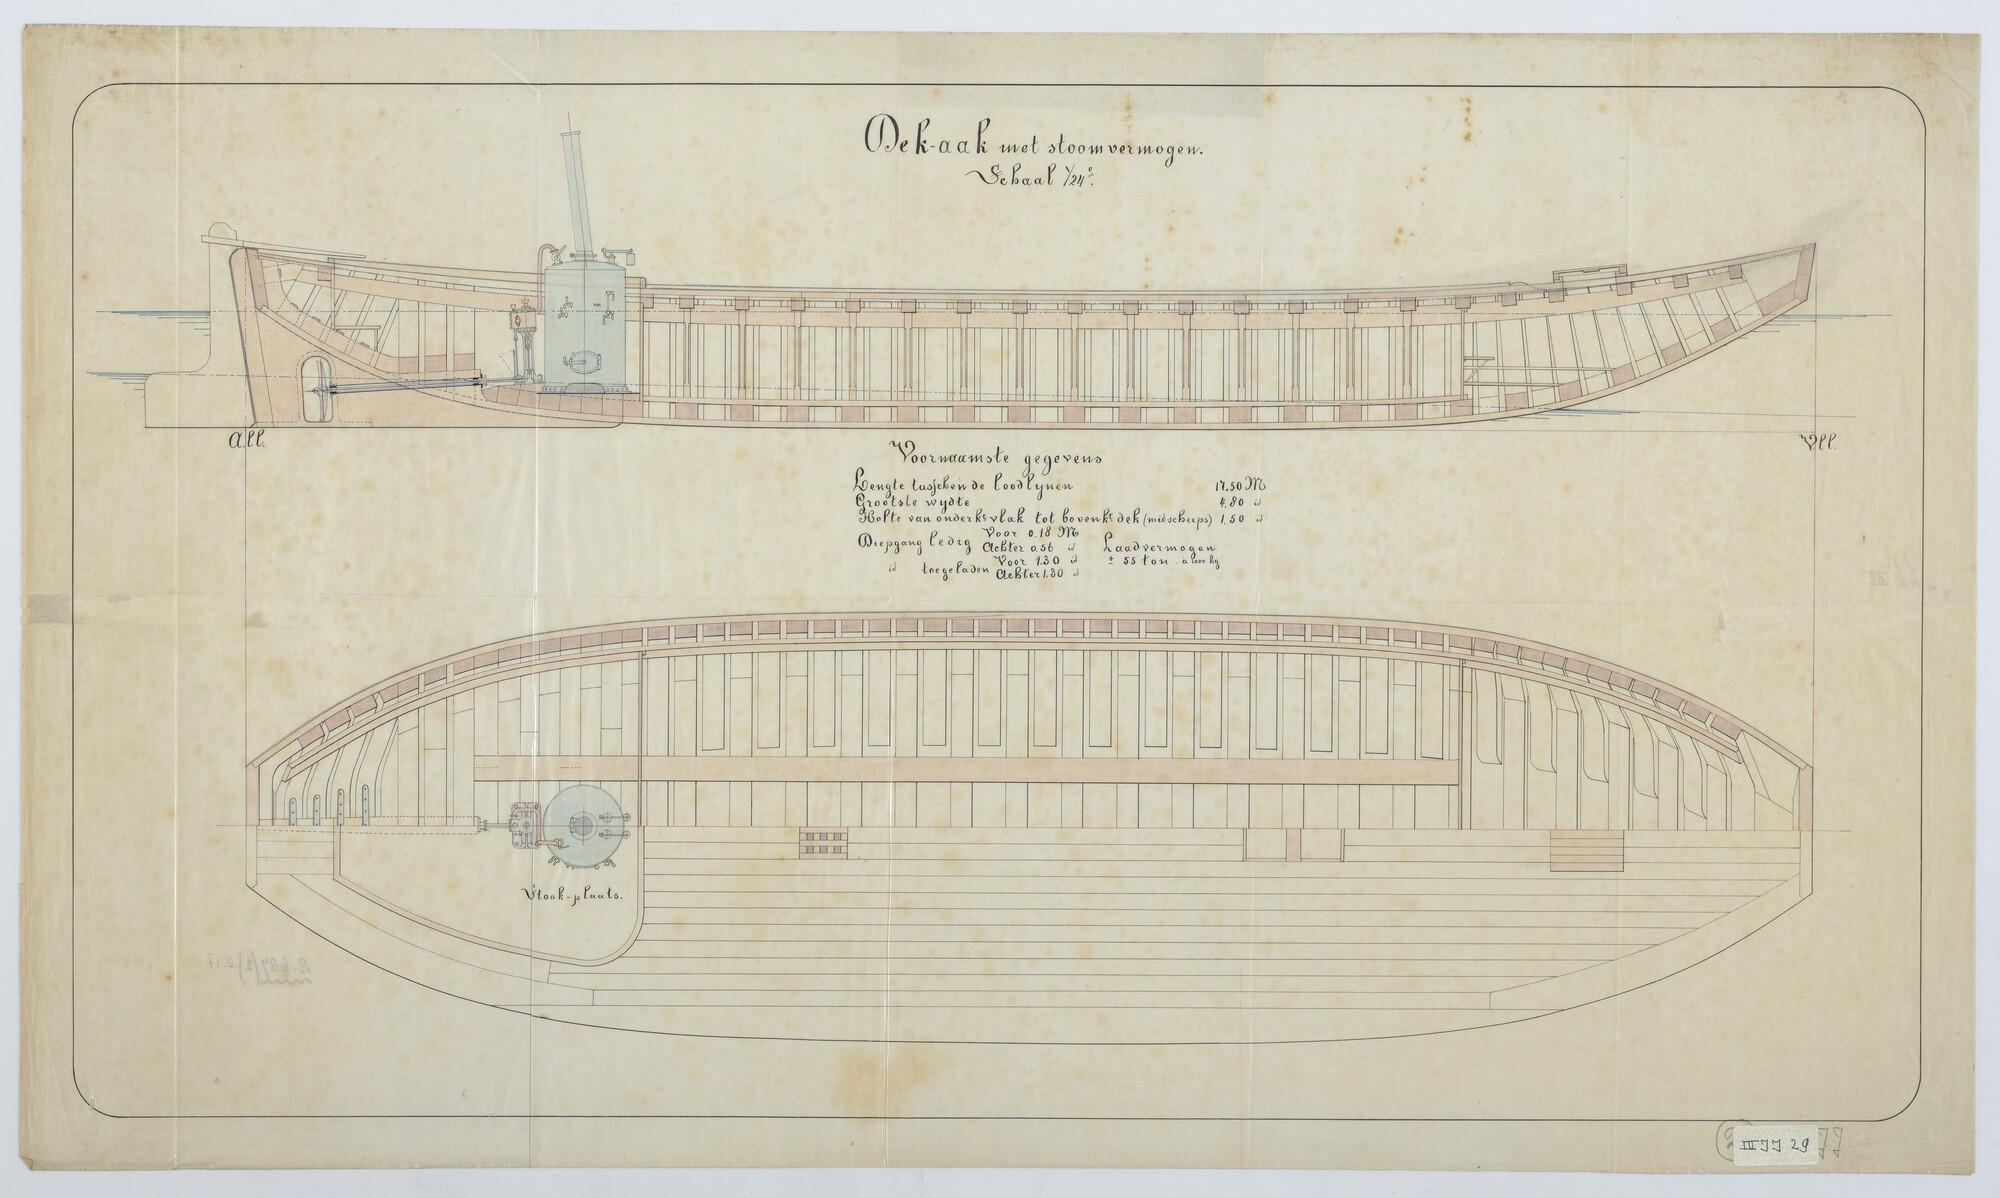 Dek-aak met stoomvermogen.
Schaal 1/24e.
A.ll.
V.ll.
Voornaamste gegevens
Lengte tusschen de loodlynen 17.50 M
Grootste wydte 4.80 id
Holte van onderkt vlak tot bovenkt dek (midscheeps) 1.50 id
Diepgang ledig Voor 0.18 M
Achter 0.56 id Laadvermogen
id toegeladen Voor 1.30 id ± 55 ton à 1000 kg
Achter 1.30 id
Stook-plaats.
III JJ 29